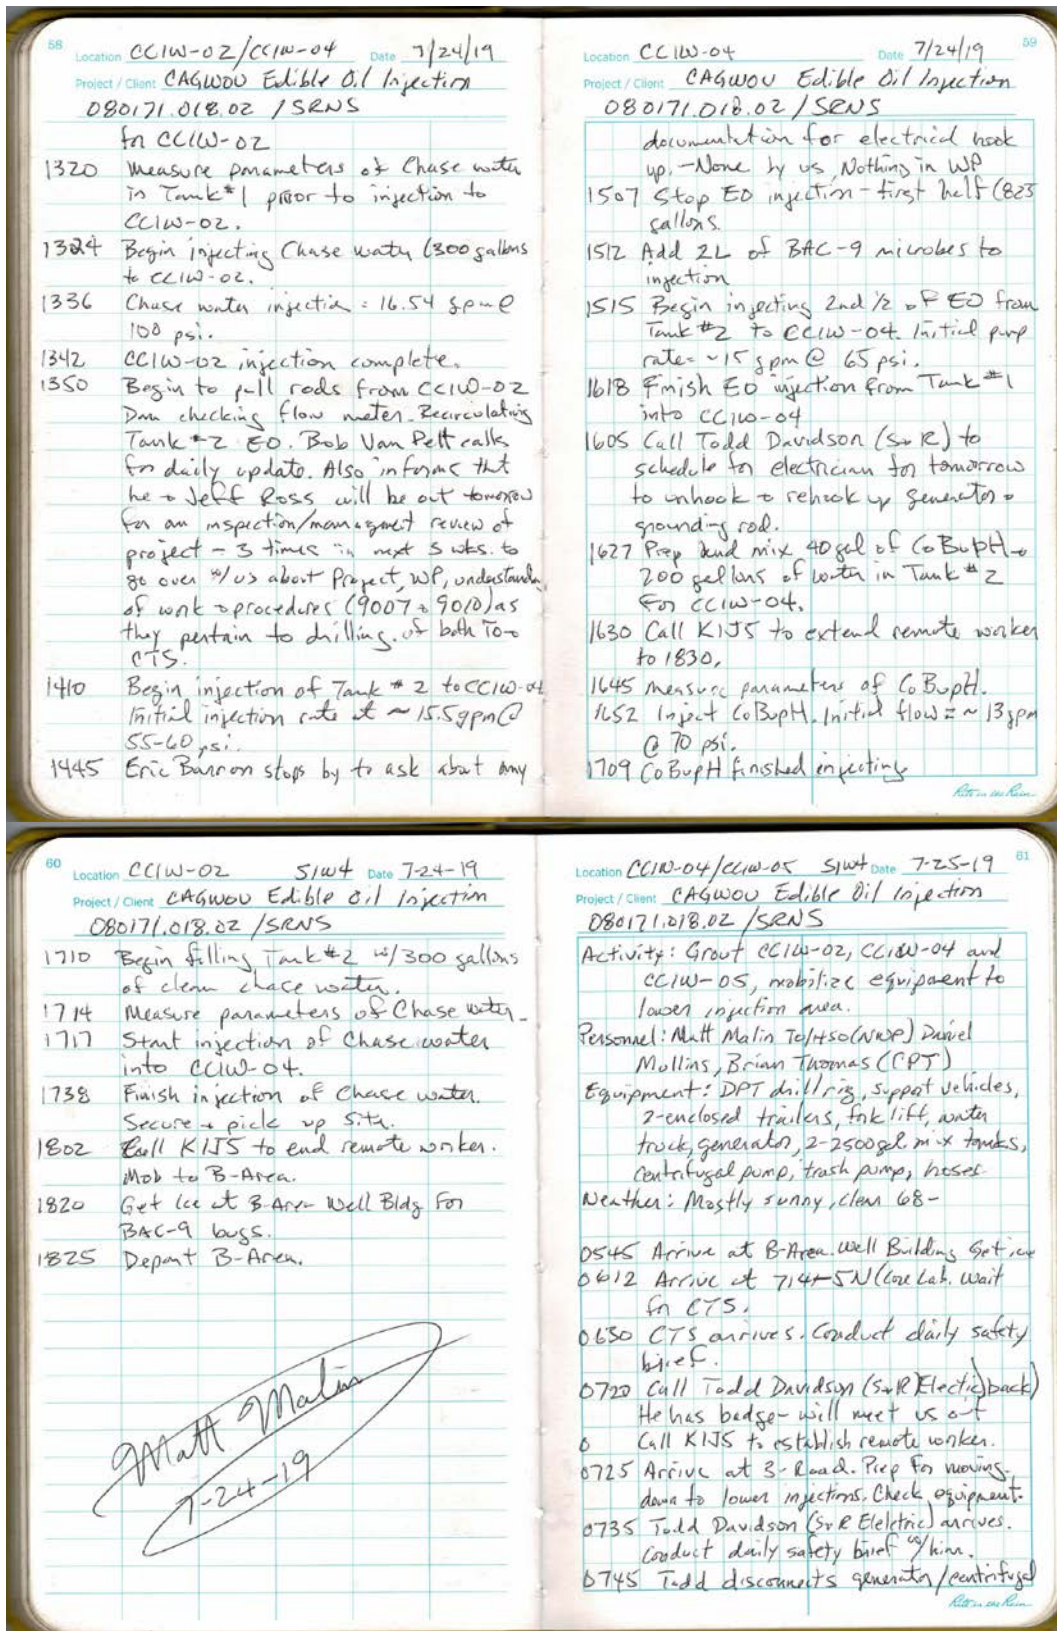 58
Location CCIW-02/CCIW-04 Date 7/24/19
Project / Client CAGWOU Edible Oil Injection
080171.018.02 / SRNS
for CCIW-02
1320 Measure parameters of Chase water
in Tank #1 prior to injection to
CCIW-02.
1324 Begin injecting Chase water (300 gallons
to CCIW-02.
1336 Chase water injection = 16.54 gpm @
100 psi.
1342 CCIW-02 injection complete.
1350 Begin to pull rods from CCIW-02
Dan checking flow meter. Recirculating
Tank #2 EO. Bob Van Pelt calls
for daily update. Also informs tht
he + Jeff Ross will be out tomorrow
for an inspection/managment review of
project - 3 times in next 3 wks. to
go over w/us about Project, WP, understanding
of work + procedures (9007 + 9010) as
they pertain to drilling. of both TO +
CTS.
1410 Begin injection of Tank #2 to CCIW-04
Initial injection rate at ~ 15.5gpm @
55-60 psi.
1445 Eric Barron stops by to ask about any
59
Location CCIW-04 Date 7/24/19
Project / Client CAGWOU Edible Oil Injection
080171.018.02 / SRNS
documentation for electrical hook
up. - None by us, Nothing in WP
1507 Stop EO injection - first half (823
gallons.
1512 Add 2L of BAC-9 microbes to
injection
1515 Begin injecting 2nd 1/2 of EO from
Tank #2 to CCIW-04. Initial pump
rate= ~15 gpm @ 65 psi.
1618 Finish EO injection from Tank #1
into CCIW-04
1605 Call Todd Davidson (S+R) to
schedule for electrician for tomorrow
to unhook + rehook up generator +
grounding rod.
1627 Prep and mix 40 gal of CoBupH +
200 gallons of water in Tank #2
For CCIW-04.
1630 Call KIJ5 to extend remote worker
to 1830.
1645 Measure parameters of CoBupH.
1652 Inject CoBupH. Initial flow = ~ 13 gpm
@ 70 psi.
1709 CoBupH finished injecting
Rite in the Rain
60
Location CCIW-02 SIW4 Date 7-24-19
Project / Client CAGWOU Edible Oil Injection
080171.018.02 /SRNS
1710 Begin filling Tank #2 w/300 gallons
of clean chase water.
1714 Measure parameters of Chase water.
1717 Start injection of Chase water
into CCIW-04.
1738 Finish injection of Chase water.
Secure + pick up site.
1802 Call KIJ5 to end remote worker.
Mob to B-Area.
1820 Get Ice at B-Area Well Bldg For
BAC-9 bugs.
1825 Depart B-Area.
Matt Malin
7-24-19
61
Location CCIW-04/CCIW-05 SIW4 Date 7-25-19
Project / Client CAGWOU Edible Oil Injection
080171.018.02 /SRNS
Activity: Grout CCIW-02, CCIW-04 and
CCIW-05, mobilize equipment to
lower injection area.
Personnel: Matt Malin TO/HSO (NWP) Daniel
Mullins, Brian Thomas (CPT)
Equipment: DPT drill rig, support vehicles,
2-enclosed trailers, fork lift, water
truck, generator, 2-2500gal. mix tanks,
centrifugal pump, trash pump, hoses.
Weather: Mostly sunny, clear 68-
0545 Arrive at B-Area. Well Building Get ice
0612 Arrive at 714-5N (Core Lab. Wait
for CTS.
0630 CTS arrives. Conduct daily safety
brief.
0720 Call Todd Davidson (S+R Electic) back)
He has badge- will meet us out
0 Call KIJ5 to establish remote worker.
0725 Arrive at 3-Road. Prep for moving
down to lower injections. Check equipment.
0735 Todd Davidson (S+R Eleletric) arrives.
Conduct daily safety brief w/him.
0745 Todd disconnects generator/centrifugal
Rite in the Rain